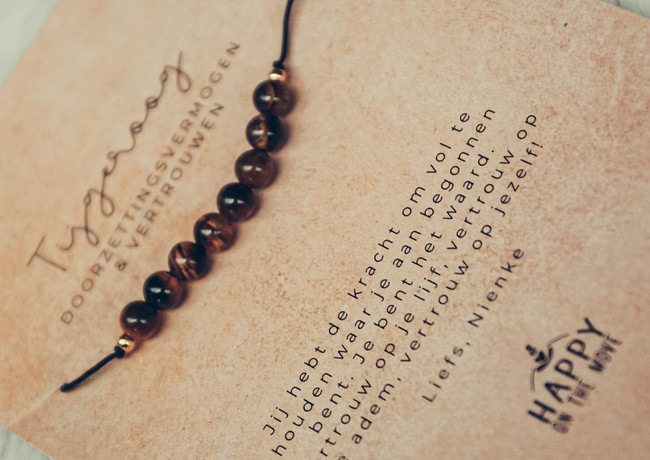 Tygeroog
DOORZETTINGSVERMOGEN
& VERTROUWEN
Jij hebt de kracht om vol te
houden waar je aan begonnen
bent. Je bent het waard.
rtrouw op je lijf, vertrouw op
e adem, vertrouw op jezelf!
Liefs, Nienke
HAPPY
ON THE MOVE